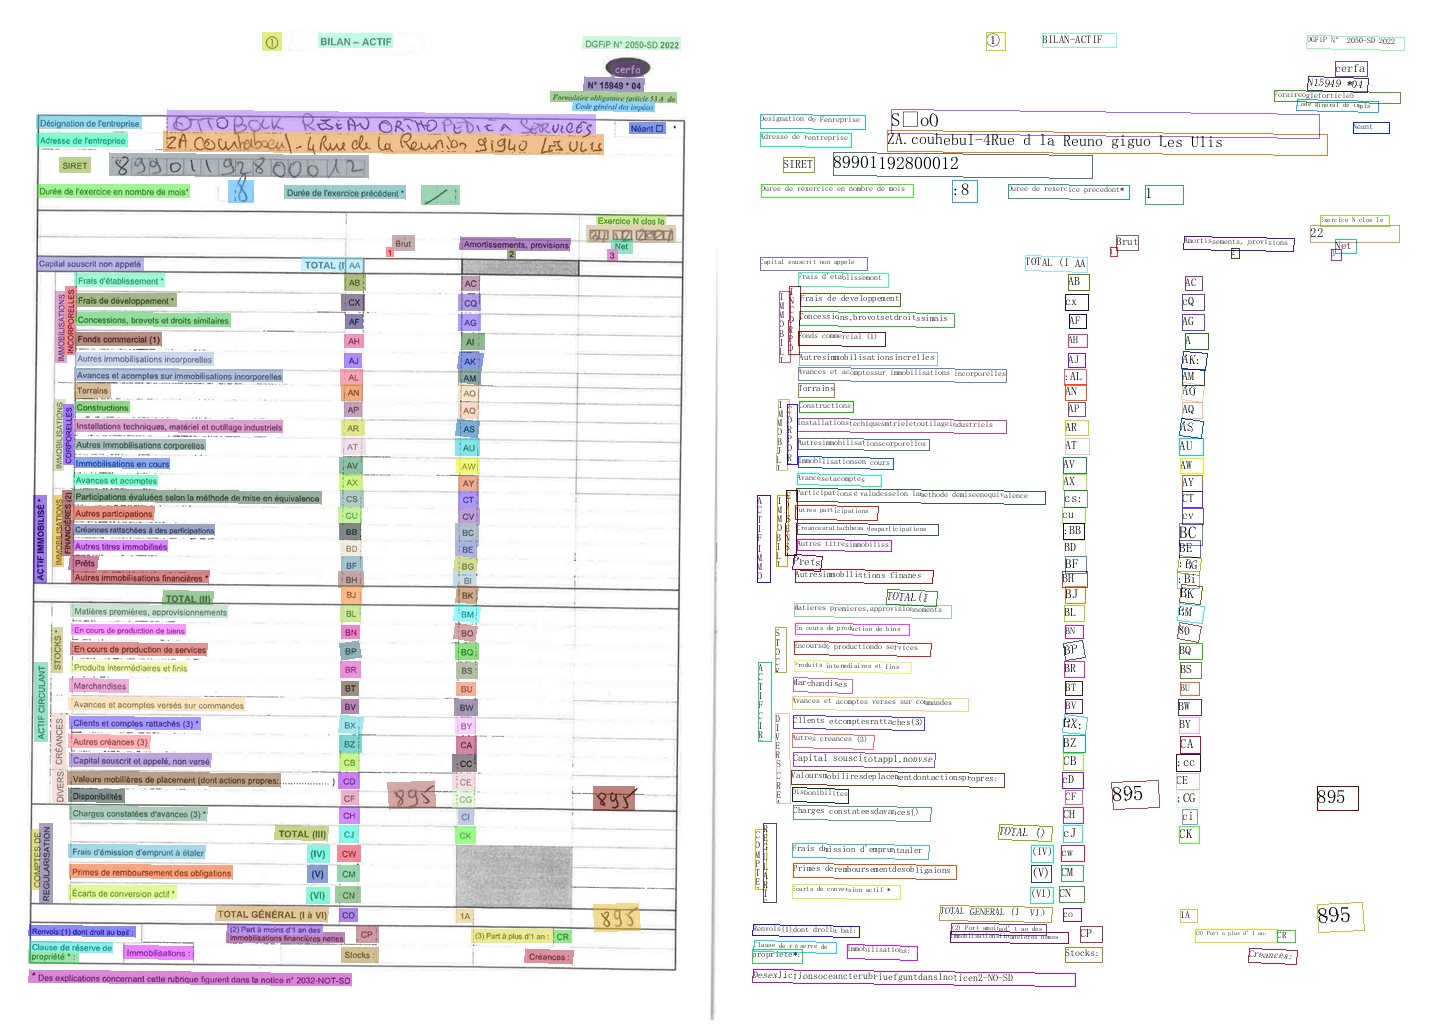 ① BILAN – ACTIF DGFiP N° 2050-SD 2022
cerfa
N° 15949 * 04
Formulaire obligatoire (article 53 A du
Code général des impôts)
Désignation de l'entreprise OTTOBOCK RESEAU ORTHOPEDIE & SERVICES Néant ☐ *
Adresse de l'entreprise ZA Courtaboeuf - 4 Rue de la Reunion 91940 LES ULIS
SIRET 89901192800012
Durée de l'exercice en nombre de mois* 8 Durée de l'exercice précédent * /
Exercice N clos le
Brut Amortissements, provisions Net
1 2 3
Capital souscrit non appelé TOTAL (I AA
IMMOBILISATIONS INCORPORELLES
Frais d'établissement * AB AC
Frais de développement * CX CQ
Concessions, brevets et droits similaires AF AG
Fonds commercial (1) AH AI
Autres immobilisations incorporelles AJ AK
Avances et acomptes sur immobilisations incorporelles AL AM
IMMOBILISATIONS CORPORELLES
Terrains AN AO
Constructions AP AQ
Installations techniques, matériel et outillage industriels AR AS
Autres immobilisations corporelles AT AU
Immobilisations en cours AV AW
Avances et acomptes AX AY
ACTIF IMMOBILISÉ *
IMMOBILISATIONS FINANCIÈRES (2)
Participations évaluées selon la méthode de mise en équivalence CS CT
Autres participations CU CV
Créances rattachées à des participations BB BC
Autres titres immobilisés BD BE
Prêts BF BG
Autres immobilisations financières * BH BI
TOTAL (II) BJ BK
ACTIF CIRCULANT
STOCKS *
Matières premières, approvisionnements BL BM
En cours de production de biens BN BO
En cours de production de services BP BQ
Produits intermédiaires et finis BR BS
Marchandises BT BU
Avances et acomptes versés sur commandes BV BW
CRÉANCES
Clients et comptes rattachés (3) * BX BY
Autres créances (3) BZ CA
Capital souscrit et appelé, non versé CB CC
DIVERS
Valeurs mobilières de placement (dont actions propres: ............... ) CD CE
Disponibilités CF 895 CG 895
Charges constatées d'avances (3) * CH CI
TOTAL (III) CJ CK
COMPTES DE REGULARISATION
Frais d'émission d'emprunt à étaler (IV) CW
Primes de remboursement des obligations (V) CM
Écarts de conversion actif * (VI) CN
TOTAL GÉNÉRAL (I à VI) CO 1A 895
Renvois:(1) dont droit au bail : (2) Part à moins d'1 an des immobilisations financières nettes CP (3) Part à plus d'1 an : CR
Clause de réserve de propriété * : Immobilisations : Stocks : Créances :
* Des explications concernant cette rubrique figurent dans la notice n° 2032-NOT-SD
① BILAN-ACTIF DGFiP N° 2050-SD 2022
cerfa
N15949 *04
Foraireogieforticle5
Code Mineral de impls
Designation de Fenreprise S□oO Neant
Adresse de rentreprise ZA.couhebul-4Rue d la Reuno giguo Les Ulis
SIRET 89901192800012
Duree de rexercice en nombre de mois :8 Duree de rexercice precedont* 1
Exercice N clos le
22
Brut Amortissements, provisions Net
Capital souscrit non appele TOTAL (I AA
IMMOBILI INCORPO
Frais d'etablissement AB AC
Frais de developpement cx cQ
Concessions,brovotsetdroitssimais AF AG
Fonds commercial (1) AH A
Autresimmobilisationsincrelles AJ AK:
Avances et acomptessur immobilisations incorporelles :AL AM
IMMOBJLI CORPOR
Torrains AN AO
Constructions AP AQ
InstallationstechiquesmtrieletoutilageIndustriels AR AS
Autresimmobilisationscorporellos AT AU
Immobilisationsen cours AV AW
Avancesetacomptes AX AY
ACTIF IMMO
IMMOBILI
Participations évaluéesselon lamethode demiseenequivalence cs: CT
Autres participations cu cv
Creancesrattacheau desparticipations :BB BC
Autres titresimmobiliss BD BE
Prets BF :BG
Autresimmobllistions finanes BH :Bi
TOTAL(I BJ BK
ACTIFCIR
STOCK
Matieres Premieres,approvisionnements BL BM
En cours de production de bins BN SO
Encoursde productiondo services BP BQ
Produits intermdiaires et fins BR BS
Marchandises BT BU
Avances et acomptes verses sur commandes BV BW
DIVERSCREA
Cllents etcomptesrattaches(3) BX: BY
Autres creances (3) BZ CA
Capital souscitotappl,nonvse CB :cc
Valoursmobiliresdeplacementdontactionspropres: cD CE
Disponibilites CF 895 :CG 895
Charges constateesdavances() CH ci
TOTAL () cJ CK
COMPTE REGULARI
Frais dmission d'empruntaaler (IV) cw
Primes deremboursementdesobligaions (V) CM
Ecarts de conversion actif * (VI) CN
TOTAL GENERAL (I VI) co 1A 895
Renvols(1)dont drolla bai: (2) Port amoind'1 an des CP (3) Part a plus d'1 an: CR
Clause de réserve de propriete*: Immobilisations: Stocks: Creances:
Desexlictionsoceancterubriuefguntdanslnoticen2-NO-SD